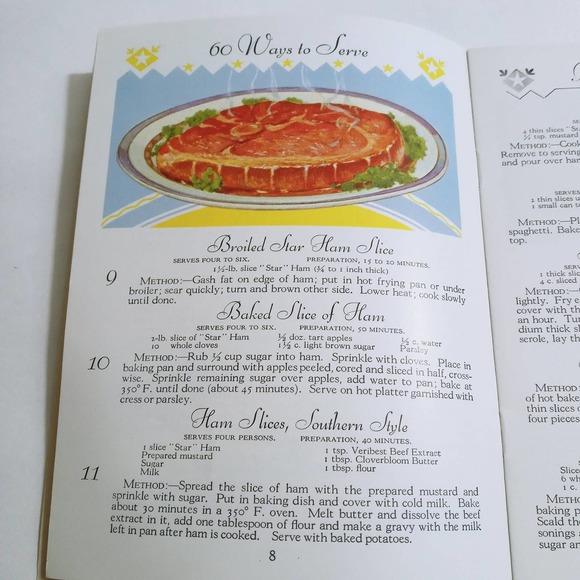 60 Ways to Serve
Broiled Star Ham Slice
SERVES FOUR TO SIX. PREPARATION, 15 TO 20 MINUTES.
1½-lb. slice "Star" Ham (¾ to 1 inch thick)
9 METHOD:—Gash fat on edge of ham; put in hot frying pan or under
broiler; sear quickly; turn and brown other side. Lower heat; cook slowly
until done.
Baked Slice of Ham
SERVES FOUR TO SIX. PREPARATION, 50 MINUTES.
2-lb. slice of "Star" Ham ½ doz. tart apples ½ c. water
10 whole cloves 1½ c. light brown sugar Parsley
10 METHOD:—Rub ½ cup sugar into ham. Sprinkle with cloves. Place in
baking pan and surround with apples peeled, cored and sliced in half, cross-
wise. Sprinkle remaining sugar over apples, add water to pan; bake at
350° F. until done (about 45 minutes). Serve on hot platter garnished with
cress or parsley.
Ham Slices, Southern Style
SERVES FOUR PERSONS. PREPARATION, 40 MINUTES.
1 slice "Star" Ham 1 tsp. Veribest Beef Extract
Prepared mustard 1 tbsp. Cloverbloom Butter
Sugar 1 tbsp. flour
Milk
11 METHOD:—Spread the slice of ham with the prepared mustard and
sprinkle with sugar. Put in baking dish and cover with cold milk. Bake
about 30 minutes in a 350° F. oven. Melt butter and dissolve the beef
extract in it, add one tablespoon of flour and make a gravy with the milk
left in pan after ham is cooked. Serve with baked potatoes.
8
4 thin slices "Sta
½ tsp. mustard
METHOD:—Cook
Remove to serving
and pour over ham
SERVES
2 thin slices u
1 small can t
METHOD:—Pl
spaghetti. Bake
top.
SERV
1 thick slic
4 c. sliced
METHOD:
lightly. Fry e
cover with th
an hour. Turn
dium thick sl
serole, lay th
METHOD
of hot bake
thin slices
four pieces
SE
Slice
6 wh
1 c.
METHOD
Scald the
sonings a
sugar an